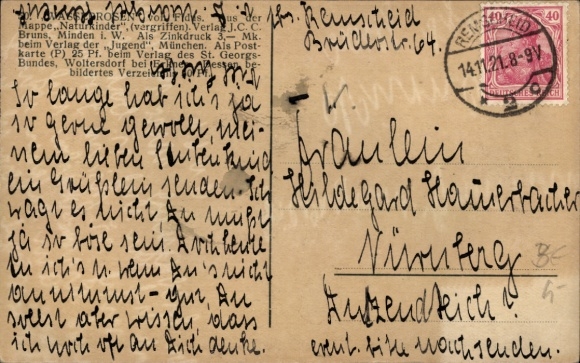 "WASSERROSEN" von Fidus. Aus der
Mappe „Naturkinder", (vergriffen). Verlag J. C. C.
Bruns, Minden i. W. Als Zinkdruck 3.— Mk.
beim Verlag der „Jugend", München. Als Post-
karte (P) 25 Pf. beim Verlag des St. Georgs-
Bundes, Woltersdorf bei Erkner. Dessen be-
bildertes Verzeichnis 50 Pf.
So lange hab ich's ja
so gerne gewollt, mei-
nem lieben
ein Grüßlein senden. Ich
wagt es nicht, Du mußt
ja so böse sein. Doch heute
tu ich's u. wenn Du's nicht
annimmst – gut. Du
sollst aber wissen, dass
ich noch oft an Dich denke.
Remscheid
Brüderstr. 64.
REMSCHEID
14.11.21. 8-9V
* 2 c
40
40
DEUTSCHES REICH
Fräulein
Hildegard Hauerbacher
Nürnberg
Dutzendteich
event. bitte nachsenden.
BE